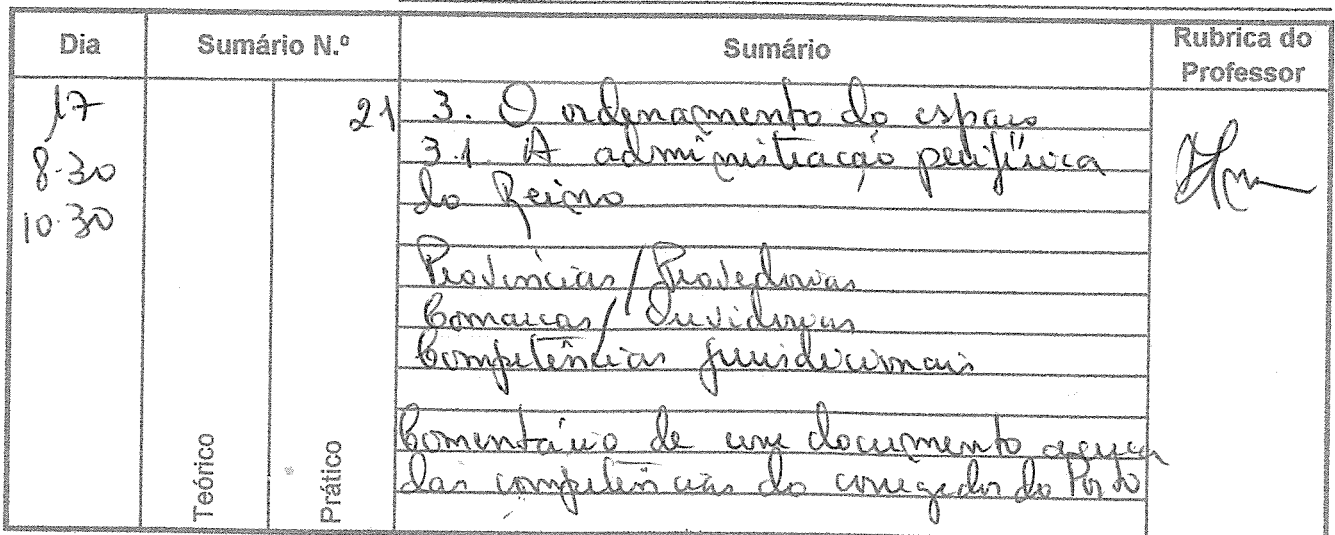 Dia Sumário N.º Sumário Rubrica do Professor
17
8.30
10.30
Teórico
Prático
21
3. O ordenamento do espaço
3.1. A administração periférica
do Reino
Províncias / Provedorias
Comarcas / Ouvidorias
Competências jurisdicionais
Comentário de um documento acerca
das competências do corregedor do Porto